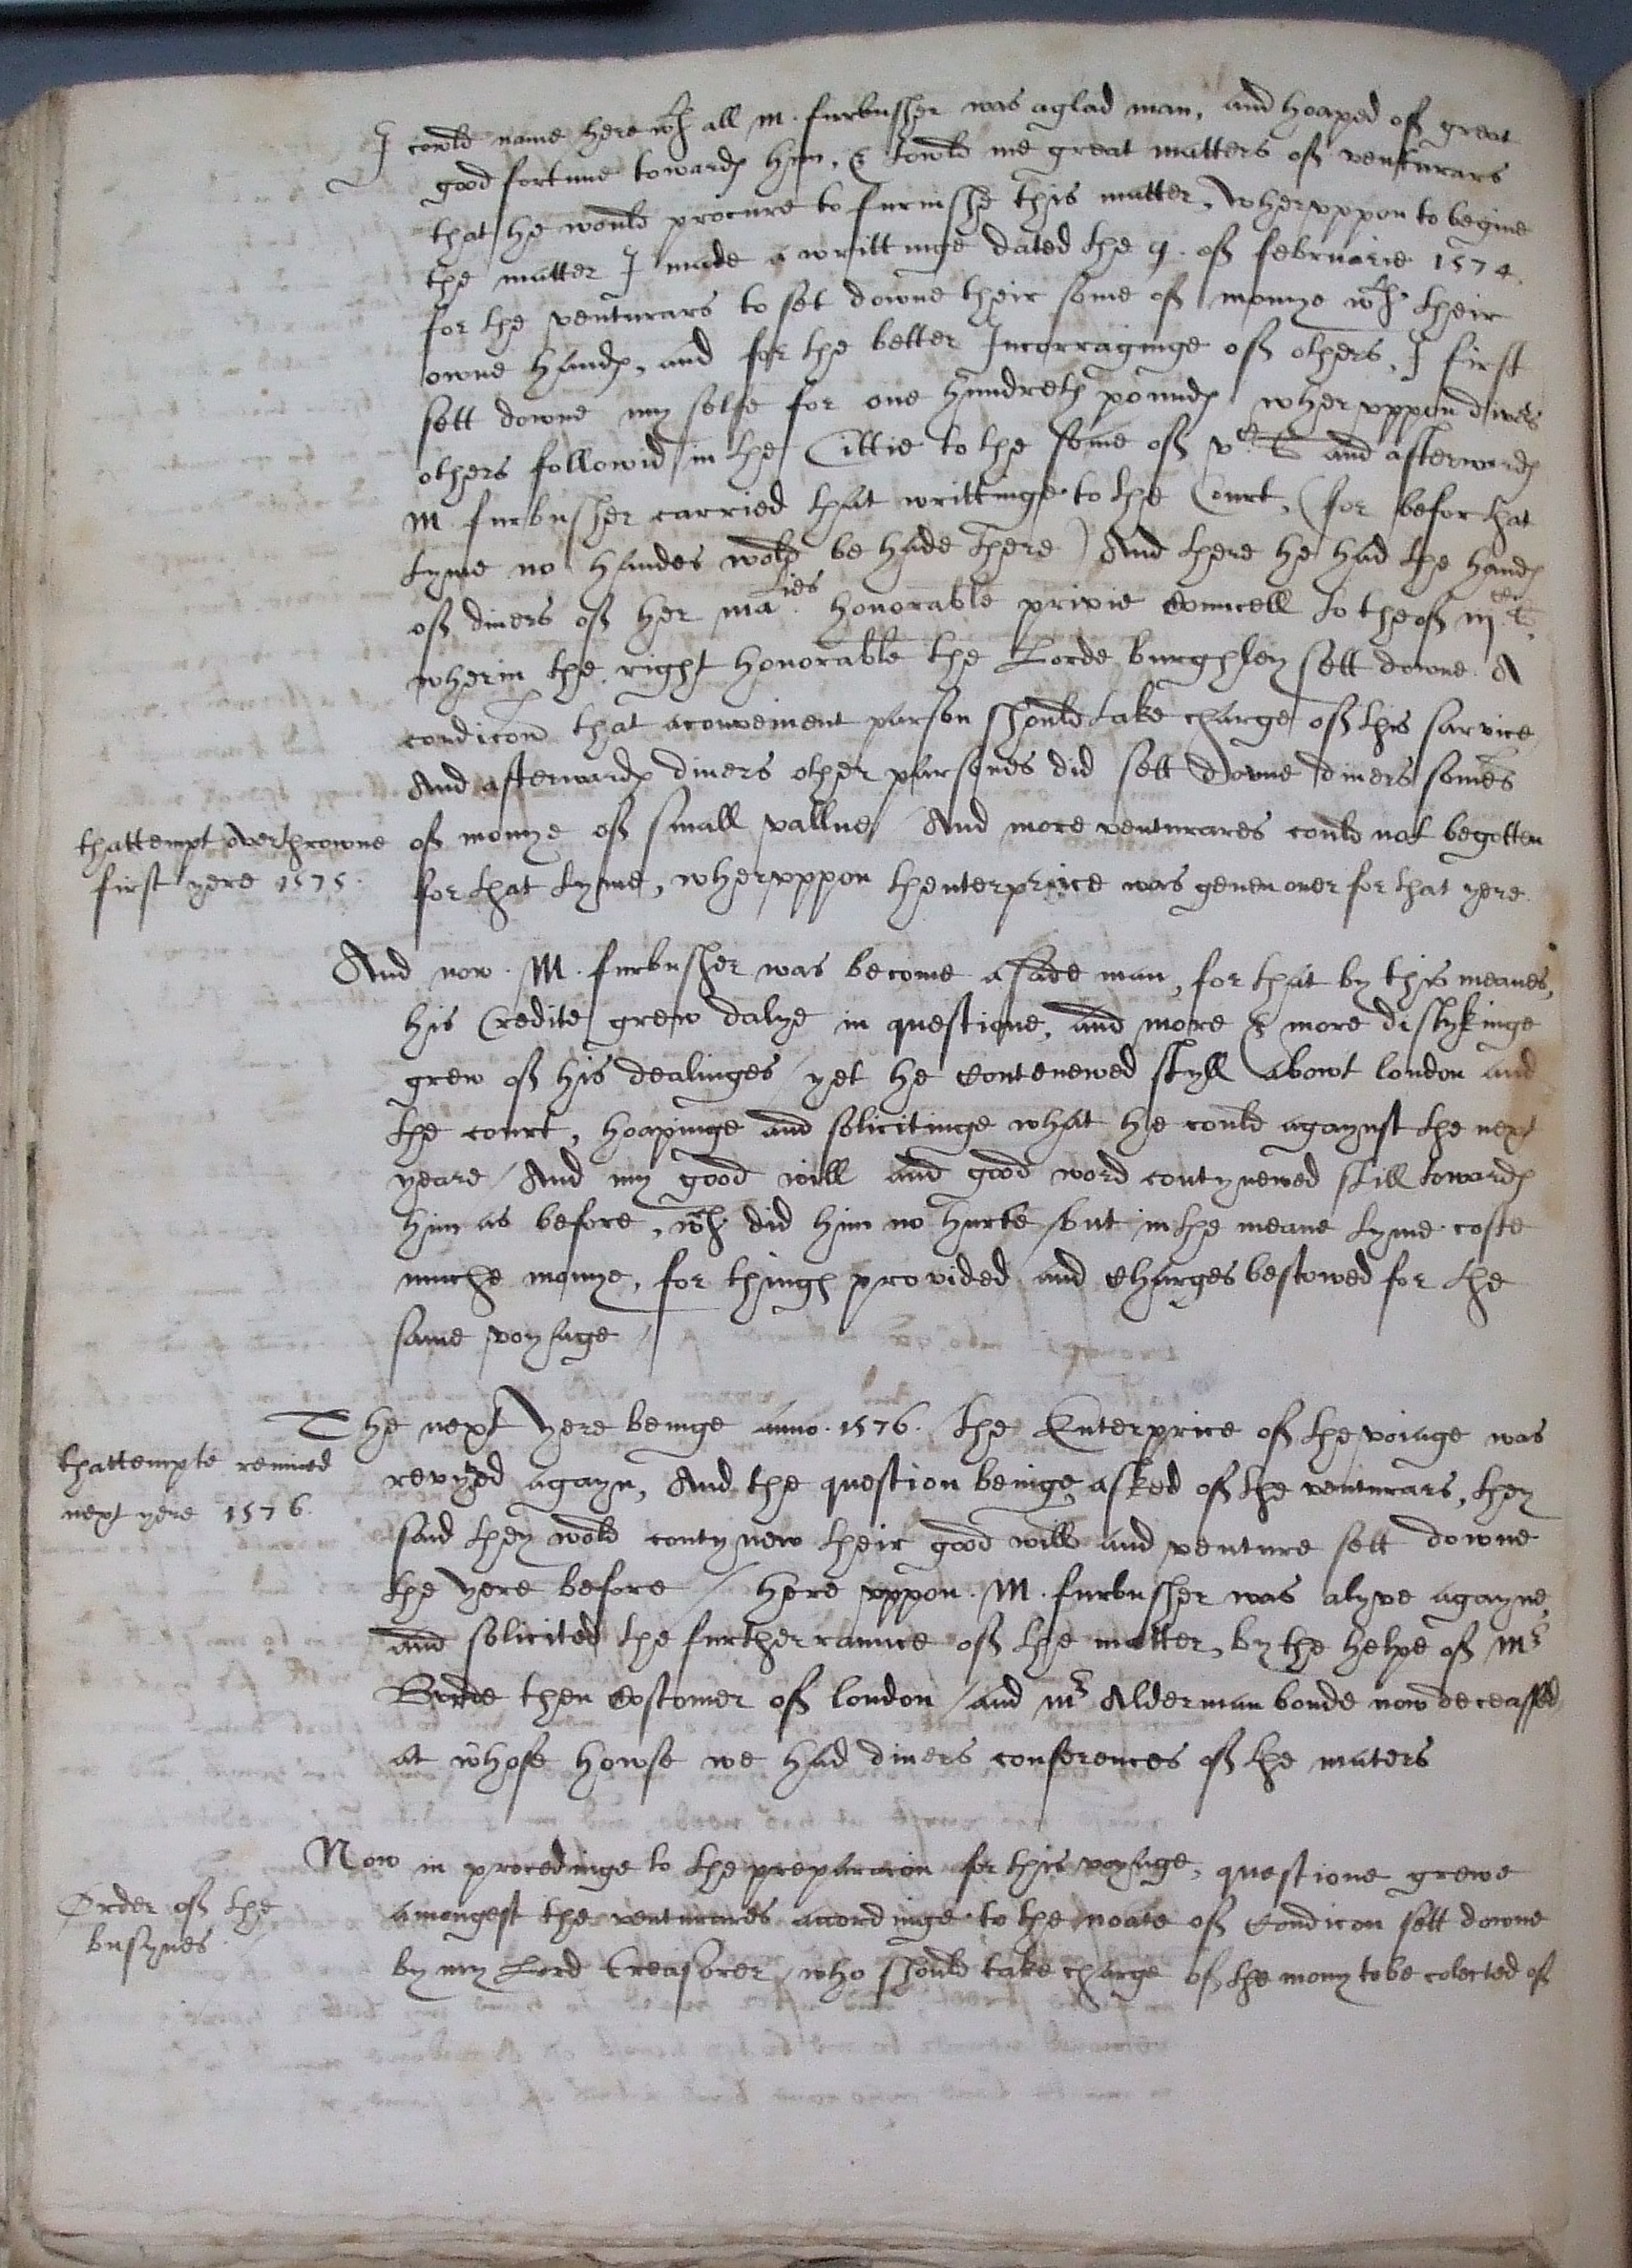 I cowld name herewth all M. furbusher was aglad man, and hoaped of great
good fortune towards him, & towld me great matters of venturars
that he would procure to furnishe this matter, Wheruppon to begine
the matter I made a writtinge dated the 9. of februarie 1574.
for the venturars to set downe their some of monye wth their
owne hands, and for the better Incorraginge of others, I first
sett downe my selfe for one hundreth pounds wheruppon divers
others followid in the Cittie to the some of vC £ and afterwards
M. furbusher carried that writtinge to the Court, (for befor that
tyme no handes wold be hade there) And there he had the hands
of divers of her maties honorable privie Councell to the of iijC £.
wherin the right honorable the Lorde burghley sett downe A
condicon that aconveinent parson should take charge of this sarvice
And afterwards divers other parsones did sett downe divers somes
thattempt overthrowne
first yere 1575.
of monye of small vallue / And more venturares could not begotten
for that tyme, wheruppon thenterprice was geven over for that yere.
And now. M. furbusher was become a sade man, for that by this meanes,
his Credite grew dalye in questione, and more & more dislykinge
grew of his dealinges / yet he contenewed styll abowt london and
the court, hoapinge and solicitinge what he could agaynst the next
yeare / And my good will and good word contynewed still towards
him as before, wch did him no hurte / but in the meane tyme coste
muche monye, for things provided and Charges bestowed for the
same voyage /
The next yere beinge anno. 1576. the Enterprice of the voiage was
thattempte reniued
next yere 1576.
revyved agayn, And the question beinge asked of the venturars, they
said they wold contynew their good will and venture sett downe
the yere before / Here uppon. M. furbusher was alyve agayne,
and solicited the furtherraunce of the matter, by the helpe of Mr
Burde then Costomer of london / and mr Alderman bonde now deceassed
at whose howse we had divers conferences of the maters
Now in procedinge to the preparacion for this voyage, questione grewe
Order of the
busynes.
amongest the venturares accordinge to the noate of Condicon sett downe
by my Lord Treasorer / who should take charge of the mony tobe colected of